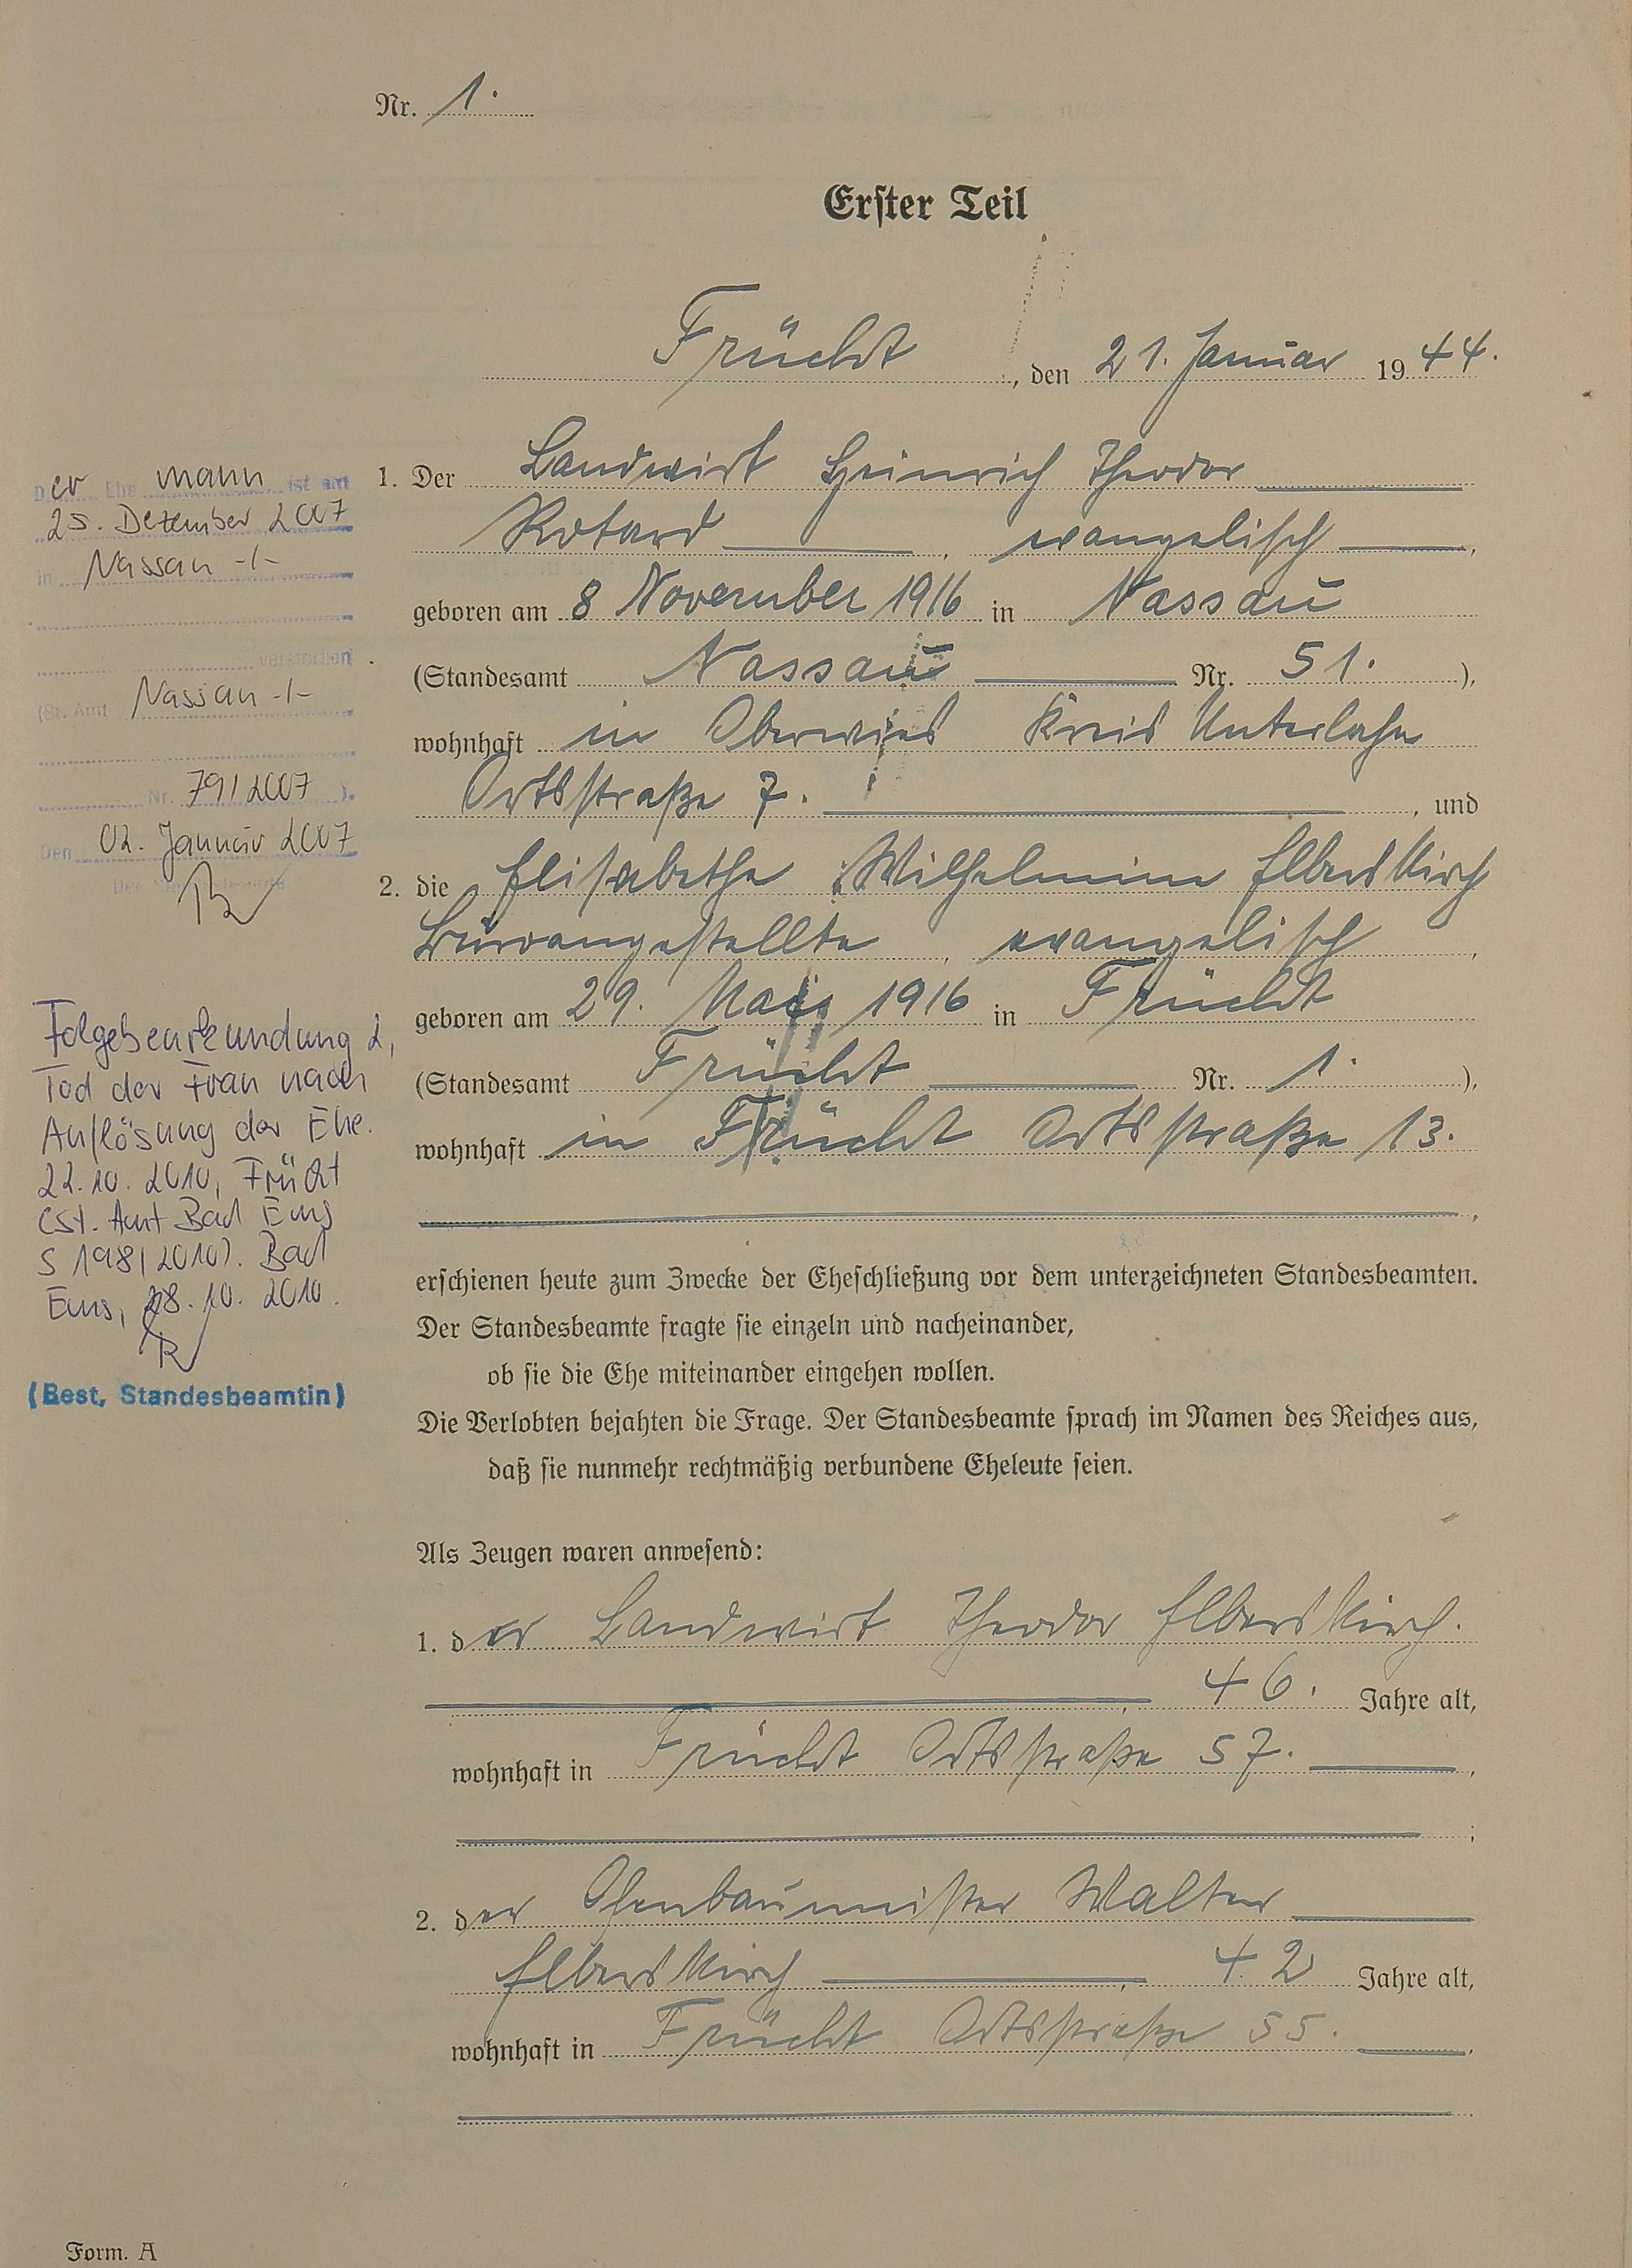 Nr. 1.
Erster Teil
Frücht, den 21. Januar 1944.
1. Der Landwirt Heinrich Theodor
evangelisch,
geboren am 8 November 1916 in Nassau
(Standesamt Nassau Nr. 51.),
wohnhaft in Oberwies Kreis Unterlahn
Ortsstraße 7. , und
2. die Elisabethe Wilhelmine Elberskirch
Büroangestellte, evangelisch,
geboren am 29. 1916 in Frücht
(Standesamt Frücht Nr. 1.),
wohnhaft in Frücht Ortsstraße 13.
erschienen heute zum Zwecke der Eheschließung vor dem unterzeichneten Standesbeamten.
Der Standesbeamte fragte sie einzeln und nacheinander,
ob sie die Ehe miteinander eingehen wollen.
Die Verlobten bejahten die Frage. Der Standesbeamte sprach im Namen des Reiches aus,
daß sie nunmehr rechtmäßig verbundene Eheleute seien.
Als Zeugen waren anwesend:
1. der Landwirt Theodor Elberskirch.
, 46. Jahre alt,
wohnhaft in Frücht Ortsstraße 57. ,
;
2. der Ofenbaumeister Walter
Elberskirch, 42 Jahre alt,
wohnhaft in Frücht Ortsstraße 55. ,
Form. A
Der Ehemann ist am
25. Dezember 2007
in Nassau -/-
verstorben
(St. Amt Nassau -/-
Nr. 79/2007 ).
Den 02. Januar 2007
Folgebeurkundung 2,
Tod der Frau nach
Auflösung der Ehe.
22.10.2010, Frücht
(St. Amt Bad Ems
S 198/2010). Bad
Ems, 28.10.2010.
(Best. Standesbeamtin)